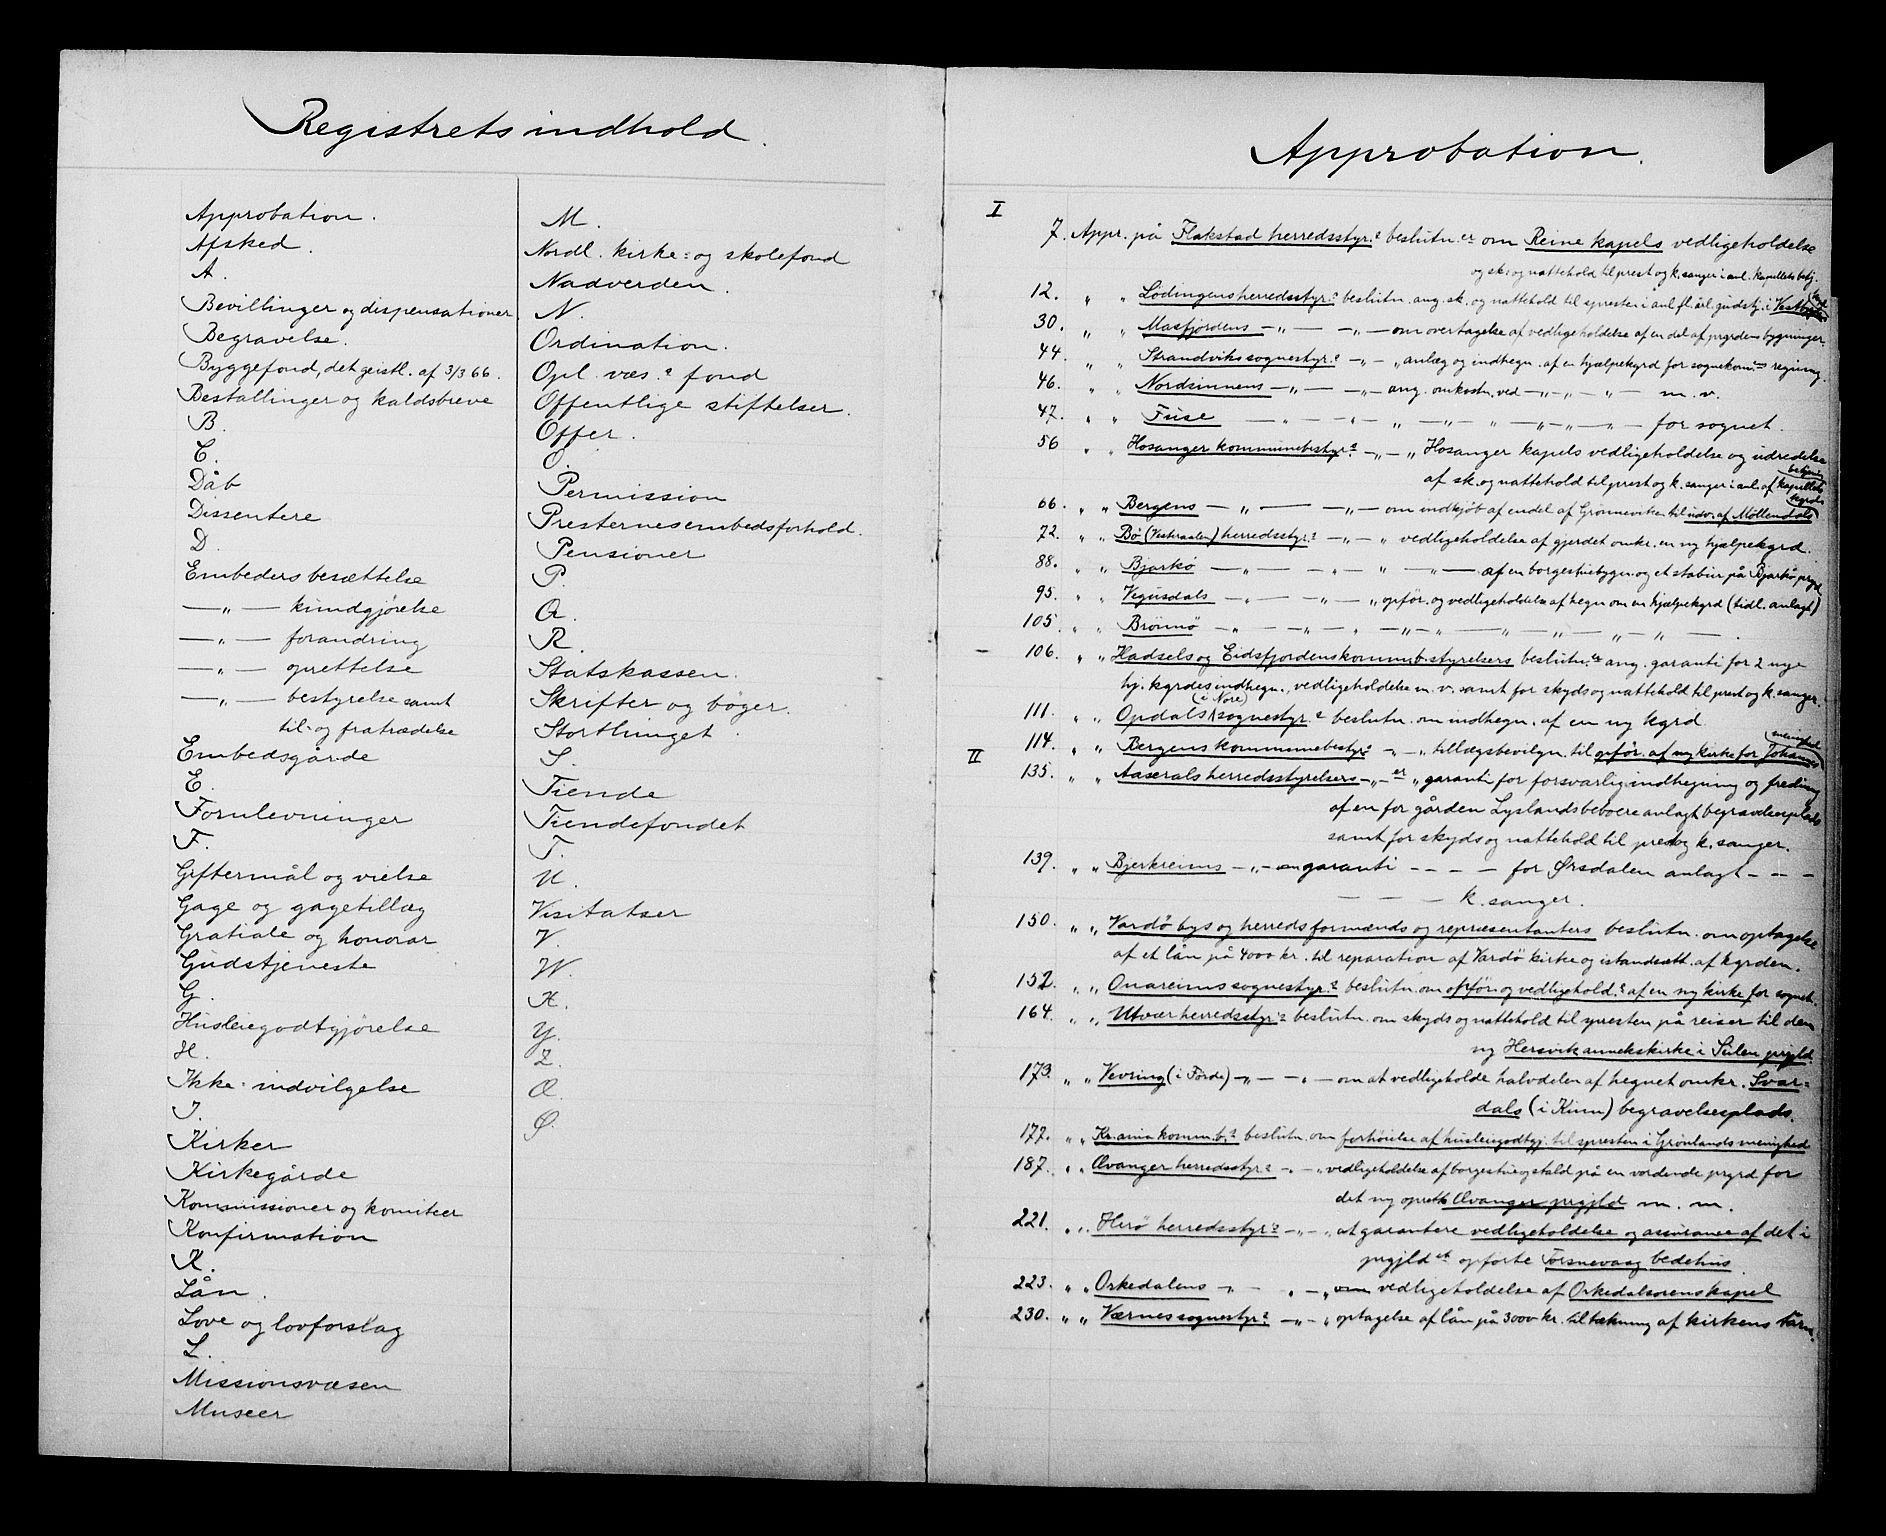 Registrets indhold.
Approbation.
Afsked.
A.
Bevillinger og dispensationer
Begravelse.
Byggefond, det geistl. af 3/3 66.
Bestallinger og kaldsbreve
B.
C.
Dåb
Dissentere
D.
Embeders besættelse
—„— kundgjørelse
—„— forandring
—„— oprettelse
—„— bestyrelse samt
til- og fratrædelse
Embedsgårde
E.
Fornlevninger
F.
Giftermål og vielse
Gage og gagetillæg
Gratiale og honorar
Gudstjeneste
G.
Husleiegodtgjørelse
H.
Ikke-indvilgelse
I.
Kirker
Kirkegårde
Kommissioner og komiteer
Konfirmation
K.
Lån.
Love og lovforslag
L.
Missionsvæsen
Museer
M.
Nordl. kirke- og skolefond
Nadverden.
N.
Ordination.
Opl. væs.s fond
Offentlige stiftelser.
Offer.
O.
Permission
Presternes embedsforhold.
Pensioner
P.
Q.
R.
Statskassen.
Skrifter og bøger.
Storthinget.
S.
Tiende
Tiendefondet
T.
U.
Visitatser
V.
W.
X.
Y.
Z.
Æ.
Ø.
Approbation.
I
7. Appr. på Flakstad herredsstyr.s beslutn.er om Reine kapels vedligeholdelse
og sk. og nattehold til prest og k. sanger i anl. kapellets betj.
12. „ „ Lødingens herredsstyr.s beslutn. ang. sk. og nattehold til spresten i anl. fl. årl. gudstj. i
30. „ „ Masfjordens —„— —„— om overtagelse af vedligeholdelse af en del af prgrdens bygninger.
44. „ Strandviks sognestyr.s —„— „ anlæg og indhegn. af en hjælpekgrd for sognekom.s regning.
46. „ Nordsinnens —„— —„— ang. omkostn. ved —„—„—„— m. v.
47. „ „ Fuse —„— „ —„—„—„— for sognet.
56 „ „ Hosanger kommunebestyr.s —„— „ Hosanger kapels vedligeholdelse og udredelse
af sk. og nattehold til prest og k. sanger i anl. af kapellets betjening
66. „ „ Bergens —„— —„— om indkjøb af endel af Grønneviken til udv. af Møllendals kgrd
72. „ „ Bø (Vesteraalen) herredsstyr.s —„— „ vedligeholdelse af gjerdet omkr. en ny hjælpekgrd.
88. „ „ Bjarkø —„— —„— „ —„— af en borgestuebygn. og et stabur på Bjarkø prgrd
95. „ „ Vegusdals —„— —„— „ opfør. og vedligeholdelse af hegn om en hjælpekgrd (tidl. anlagt)
105. „ „ Brønnø —„— —„— „ —„—„— —„— „ —„— „ —.
106. „ „ Hadsels og Eidsfjordens kommunebestyrelsers beslutn.er ang. garanti for 2 nye
hj. kgrdes indhegn., vedligeholdelse m. v. samt for skyds og nattehold til prest og k. sanger.
111. „ „ Opdals (i Nore) sognestyr.s beslutn. om indhegn. af en ny kgrd.
II
114. „ „ Bergens kommunebestyr.s —„— „ tillægsbevilgn. til opfør. af ny kirke for Johannes menighed
135. „ „ Aaserals herredsstyrelsers —„—er „ garanti for forsvarlig indhegning og fredning
af en for gården Lyslands beboere anlagt begravelsesplads
samt for skyds og nattehold til prest og k. sanger.
139. „ „ Bjerkreims —„— om garanti — — — — for Ørsdalen anlagt — — —
— — — k. sanger.
150. „ „ Vardø bys og herreds formænds og repræsentanters beslutn. om optagelse
af et lån på 4000 kr. til reparation af Vardø kirke og istandsætt. af kgrden.
152. „ „ Onareims sognestyr.s beslutn. om opfør. og vedligehold.s af en ny kirke for sognet.
164. „ „ Utvær herredsstyr.s beslutn. om skyds og nattehold til spresten på reiser til den
ny Hersvik annekskirke i Sulen prgjld.
173. „ „ Vevring (i Førde) —„— —„— om at vedligeholde halvdelen af hegnet omkr. Svar=
dals (i Kinn) begravelsesplads.
177. „ „ Kr.ania komm.b.s beslutn. om forhøielse af husleiegodtgj. til spresten i Grønlands menighed
187. „ „ Ævanger herredsstyr.s —„— „ vedligeholdelse af borgestue og stald på en vordende prgrd for
det ny oprett. Ævanger prgjld m. m.
221. „ „ Herø herredsstyr.s —„— „ at garantere vedligeholdelse og assurance af det i
prgjldet opførte Torsnevaag bedehus.
223. „ „ Orkedalens —„— —„— „ om vedligeholdelse af Orkedalsørens kapel
230. „ „ Værnes sognestyr.s —„— „ optagelse af lån på 3000 kr. til tækning af kirkens tårn.